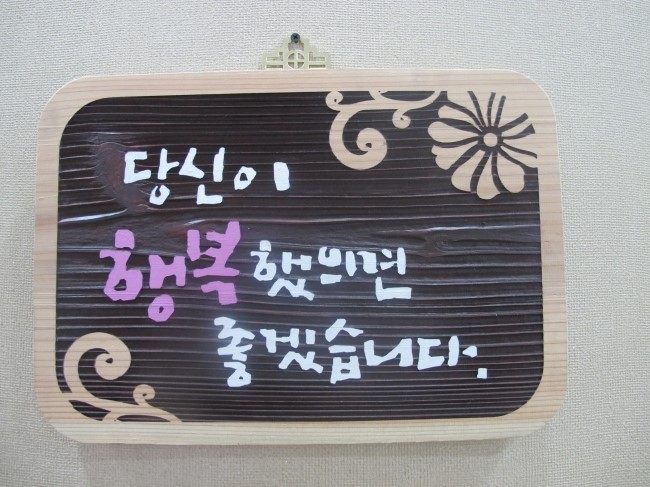 당신이
행복했으면
좋겠습니다.